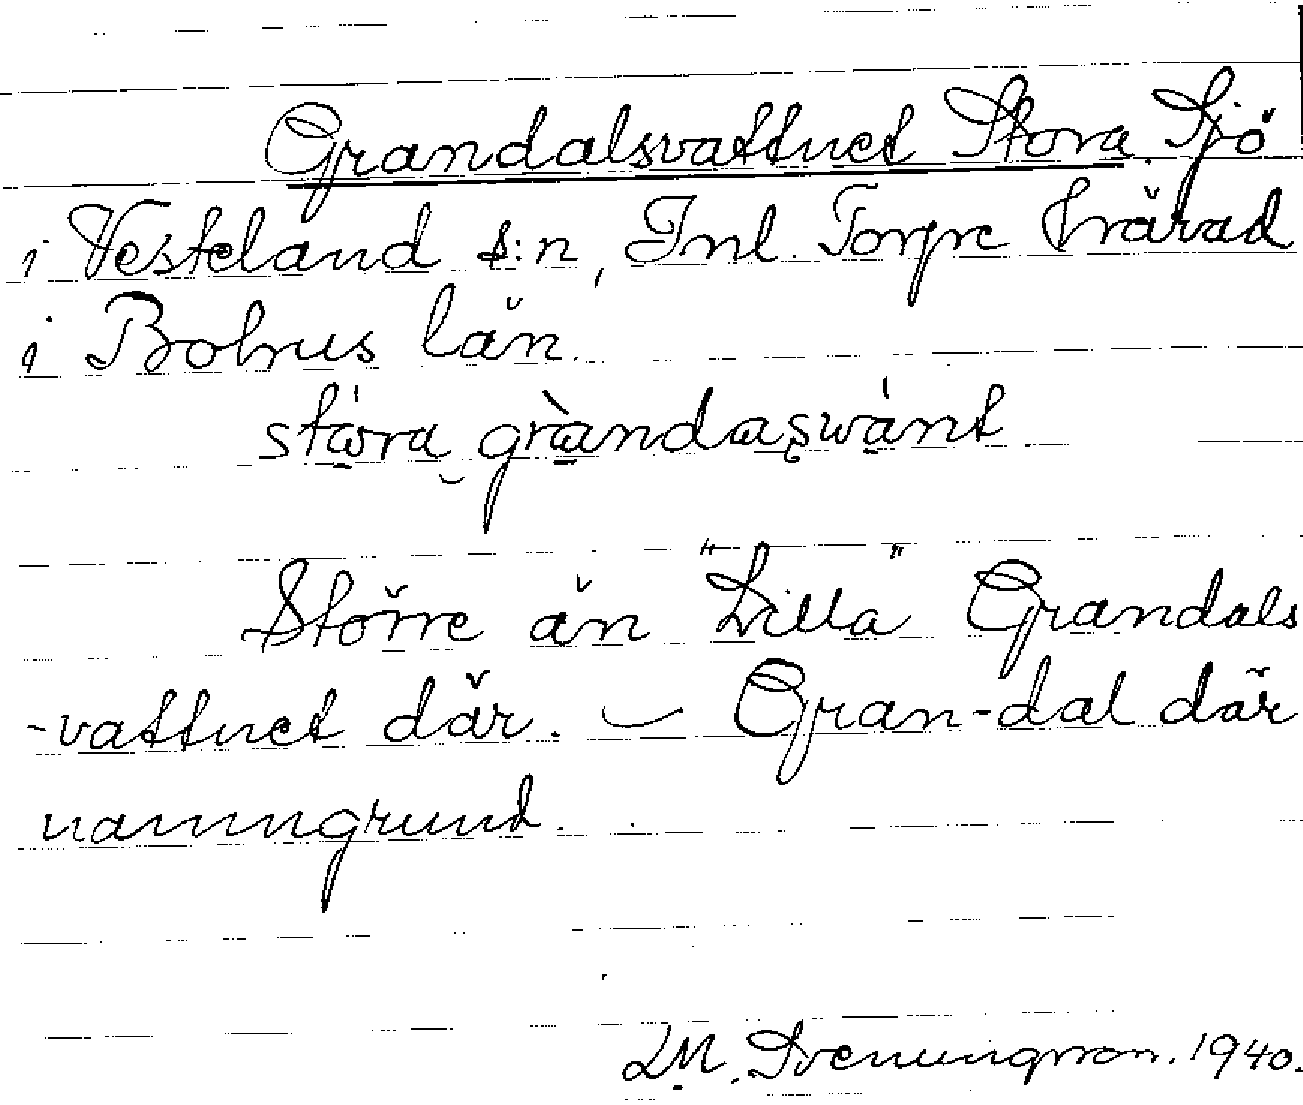 Grandalsvattnet Stora. Sjö
i Vesteland s:n, Inl. Torpe härad
i Bohus län.
stora grandasvant
Större än "Lilla" Grandals
-vattnet där. — Gran-dal där
namngrund.
LM. Svenungsson. 1940.